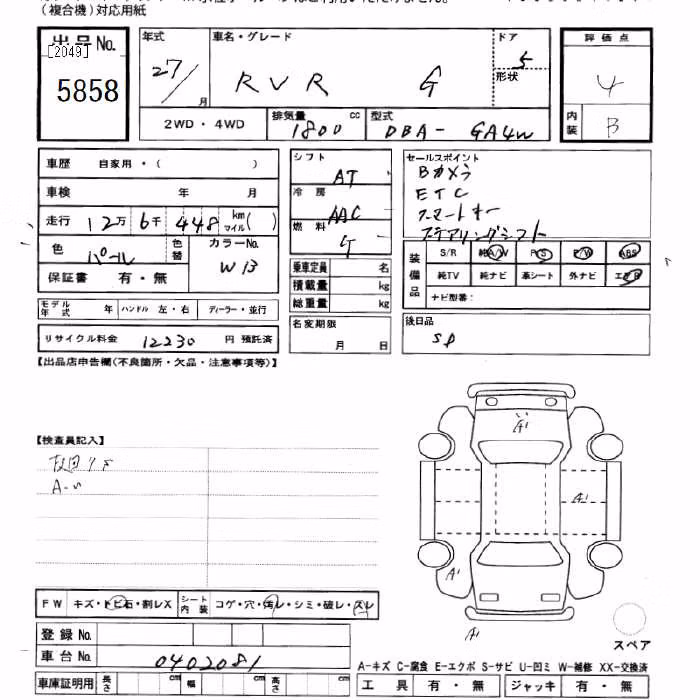 (複合機)対応用紙
出品No.
[2049]
5858
年式
27/
月
車名・グレード
RVR G
ドア
5
形状
評価点
4
内装
B
2WD・4WD
排気量
1800
cc
型式
DBA- GA4W
車歴 自家用・( )
車検 年 月
走行 12万 6千 448 km マイル( )
色 パール
色替
カラーNo.
W13
保証書 有・無
モデル年式 年 ハンドル 左・右 ディーラー・並行
リサイクル料金 12230 円 預託済
シフト
AT
冷房
AAC
燃料
G
乗車定員 名
積載量 kg
総重量 kg
名変期限
月 日
セールスポイント
Bカメラ
ETC
スマートキー
ステアリングシフト
装備品
S/R 純A/W P/S P/W ABS
純TV 純ナビ 革シート 外ナビ エアB
ナビ型番:
後日品
SP
【出品店申告欄(不良箇所・欠品・注意事項等)】
【検査員記入】
A'
A'
A'
A'
FW キズ・トビ石・割レX シート内装 コゲ・穴・汚レ・シミ・破レ・スレ
登録No.
車台No. 0402081
車庫証明用 長さ cm 幅 cm 高さ cm
スペア
A-キズ C-腐食 E-エクボ S-サビ U-凹ミ W-補修 XX-交換済
工具 有・無 ジャッキ 有・無